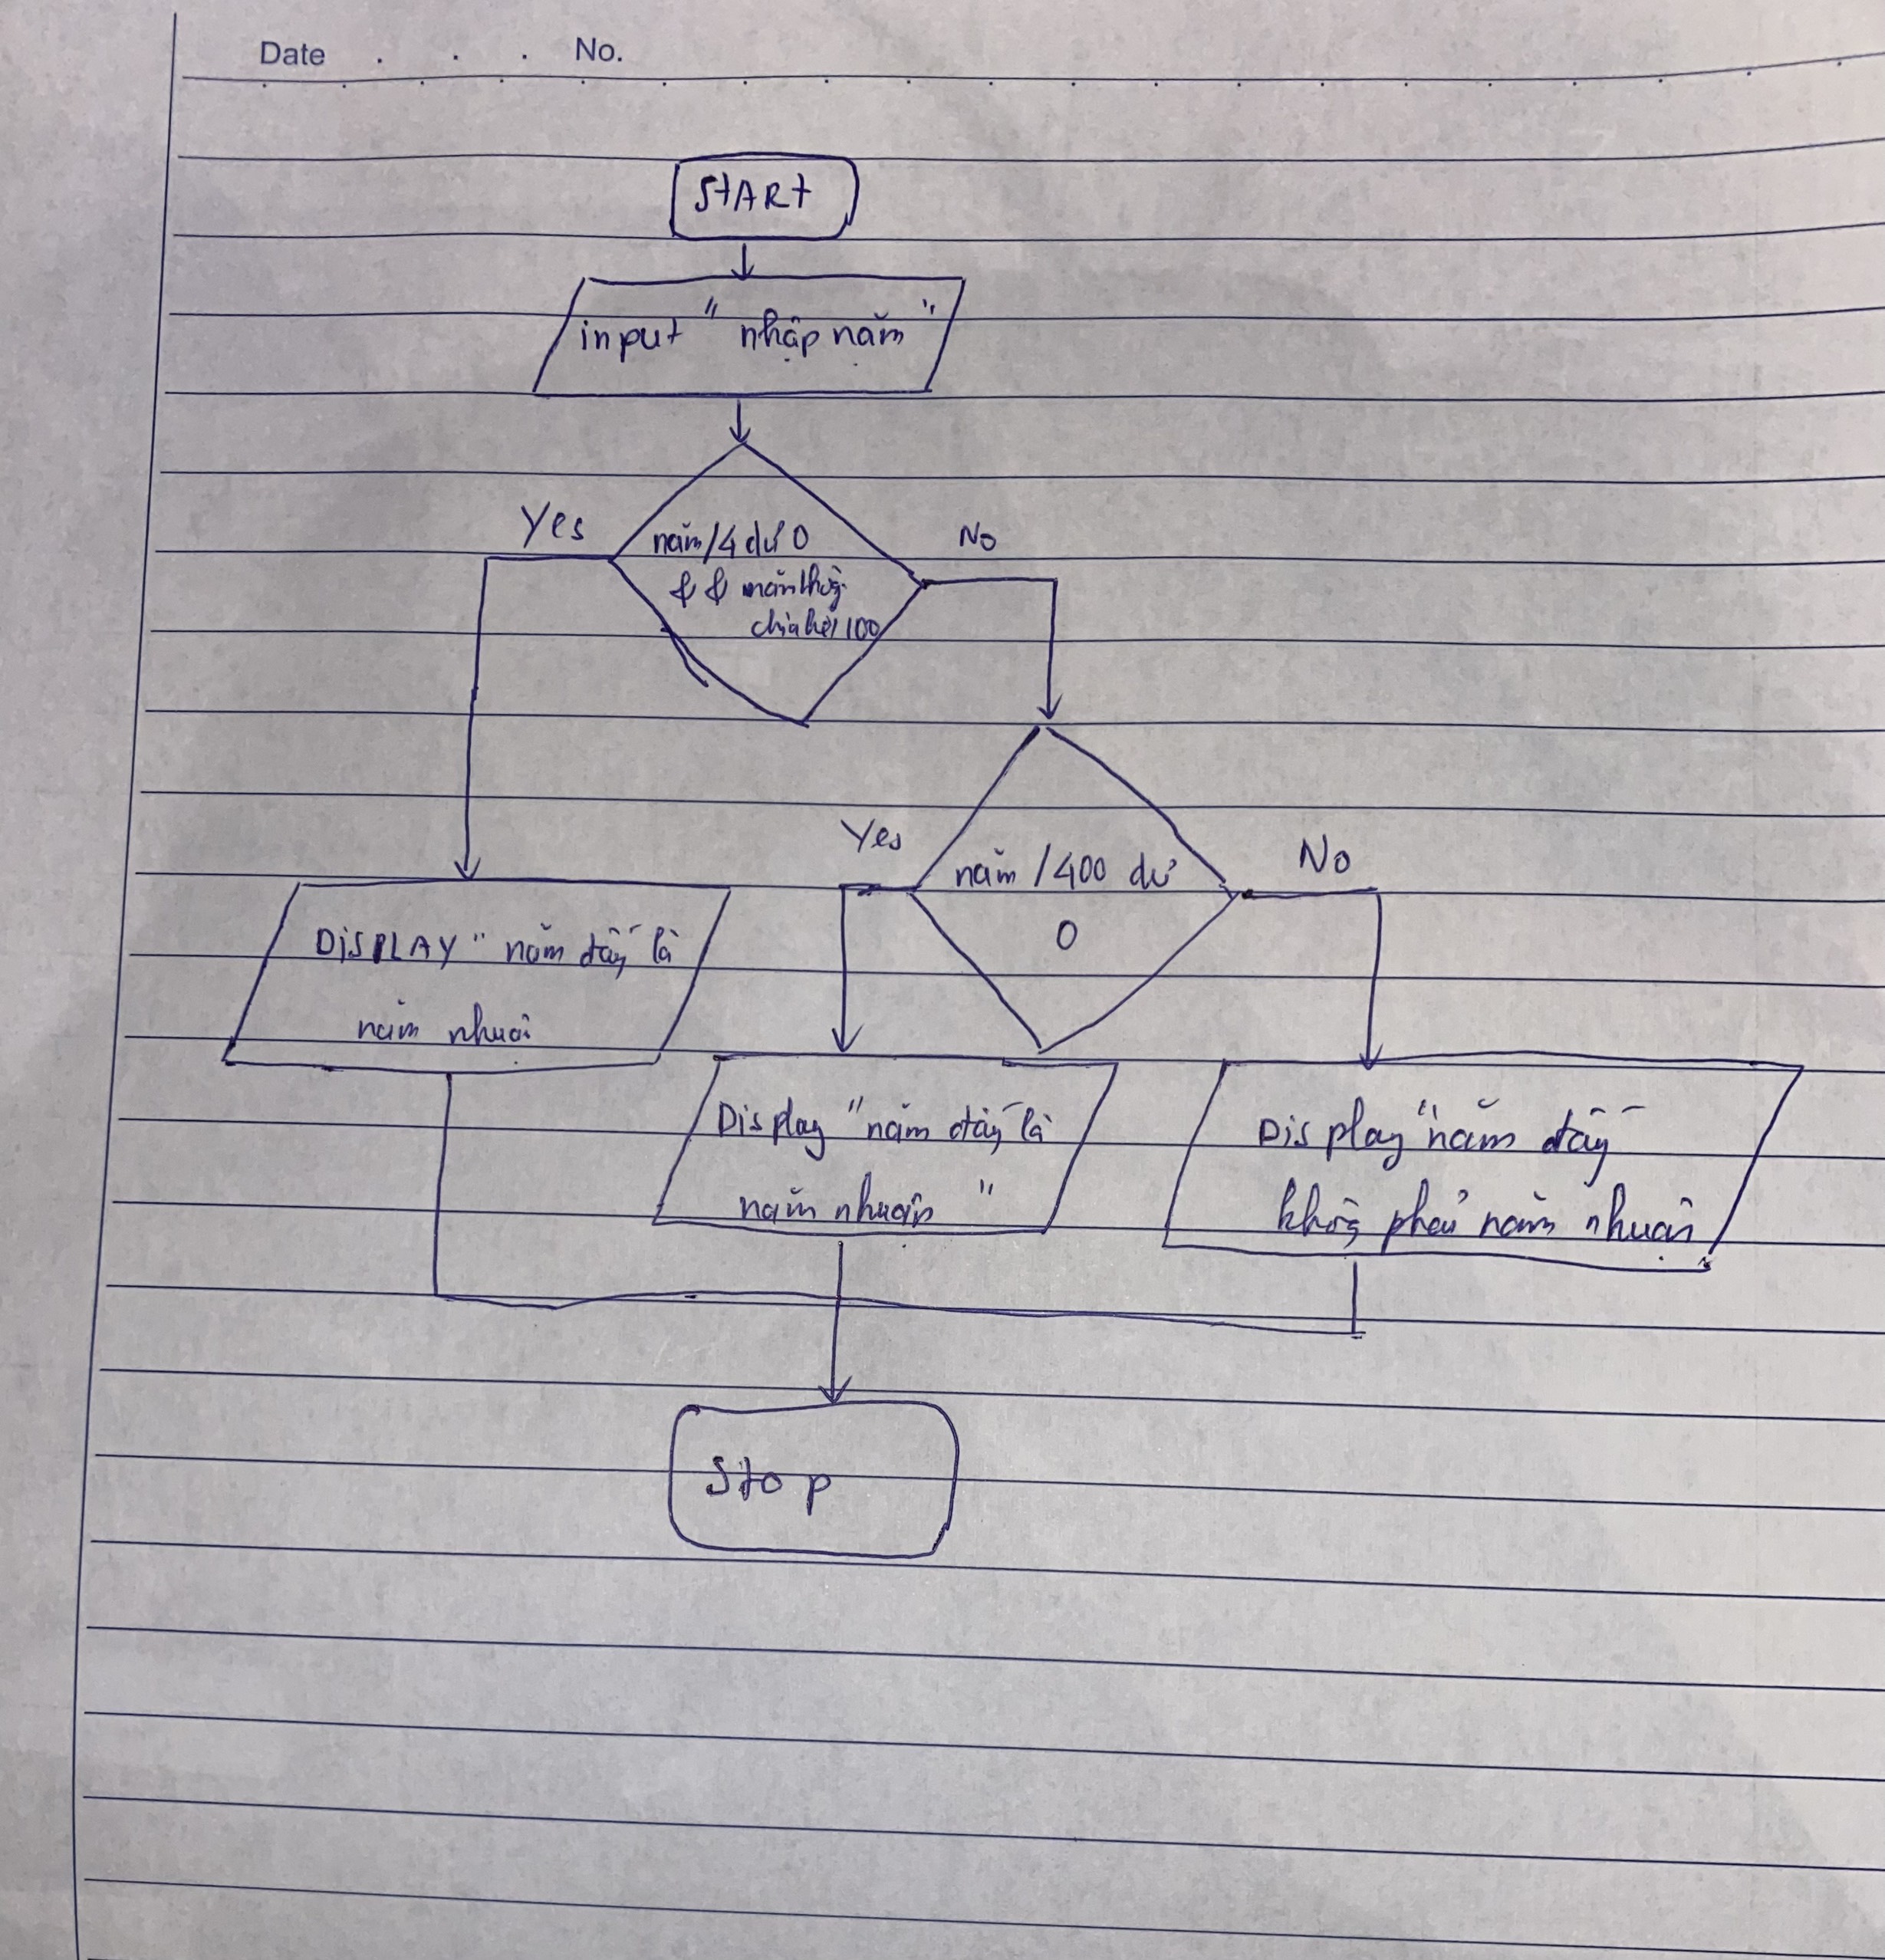 Date . . . No.
START
input " nhập năm "
Yes
năm/4 dư 0
No
&& năm không
chia hết 100
Yes
năm /400 dư
0
No
DiSPLAY " năm đấy là
năm nhuận
Display "năm đấy là
năm nhuận "
Display "năm đấy
không phải năm nhuận
Stop